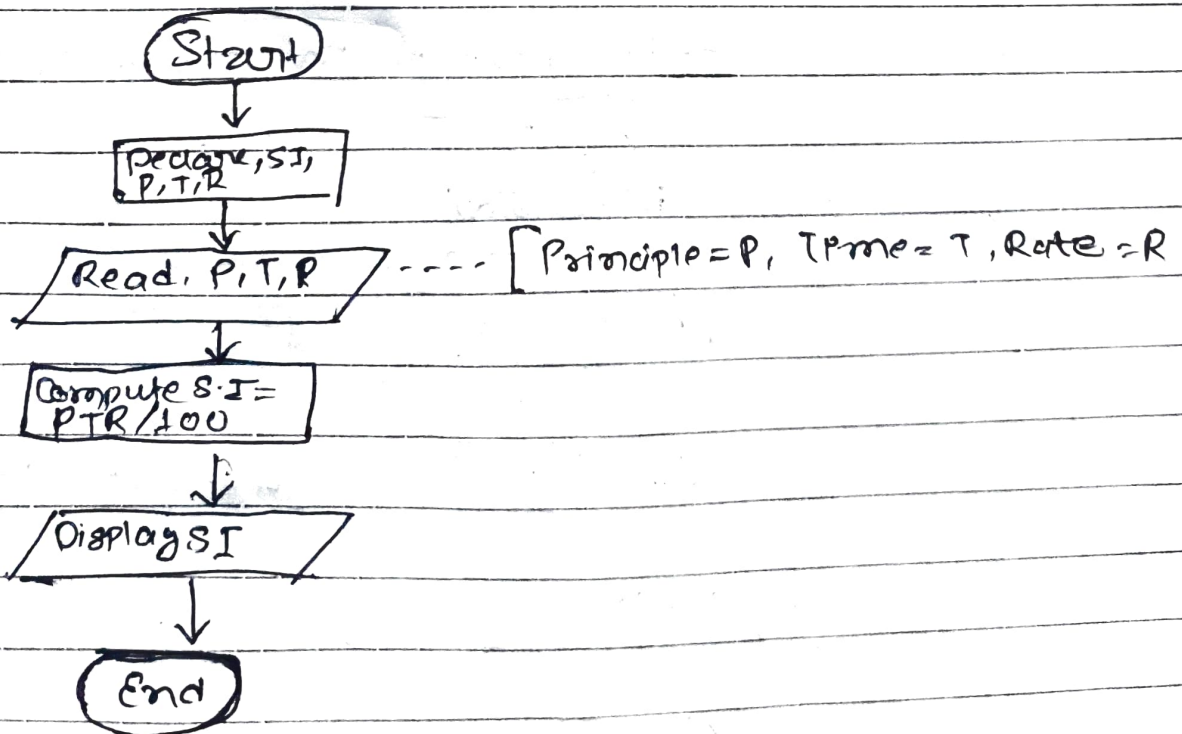 Start
Declare, SI,
P, T, R
Read, P, T, R
Principle = P, Time = T, Rate = R
Compute S.I =
PTR/100
Display SI
End